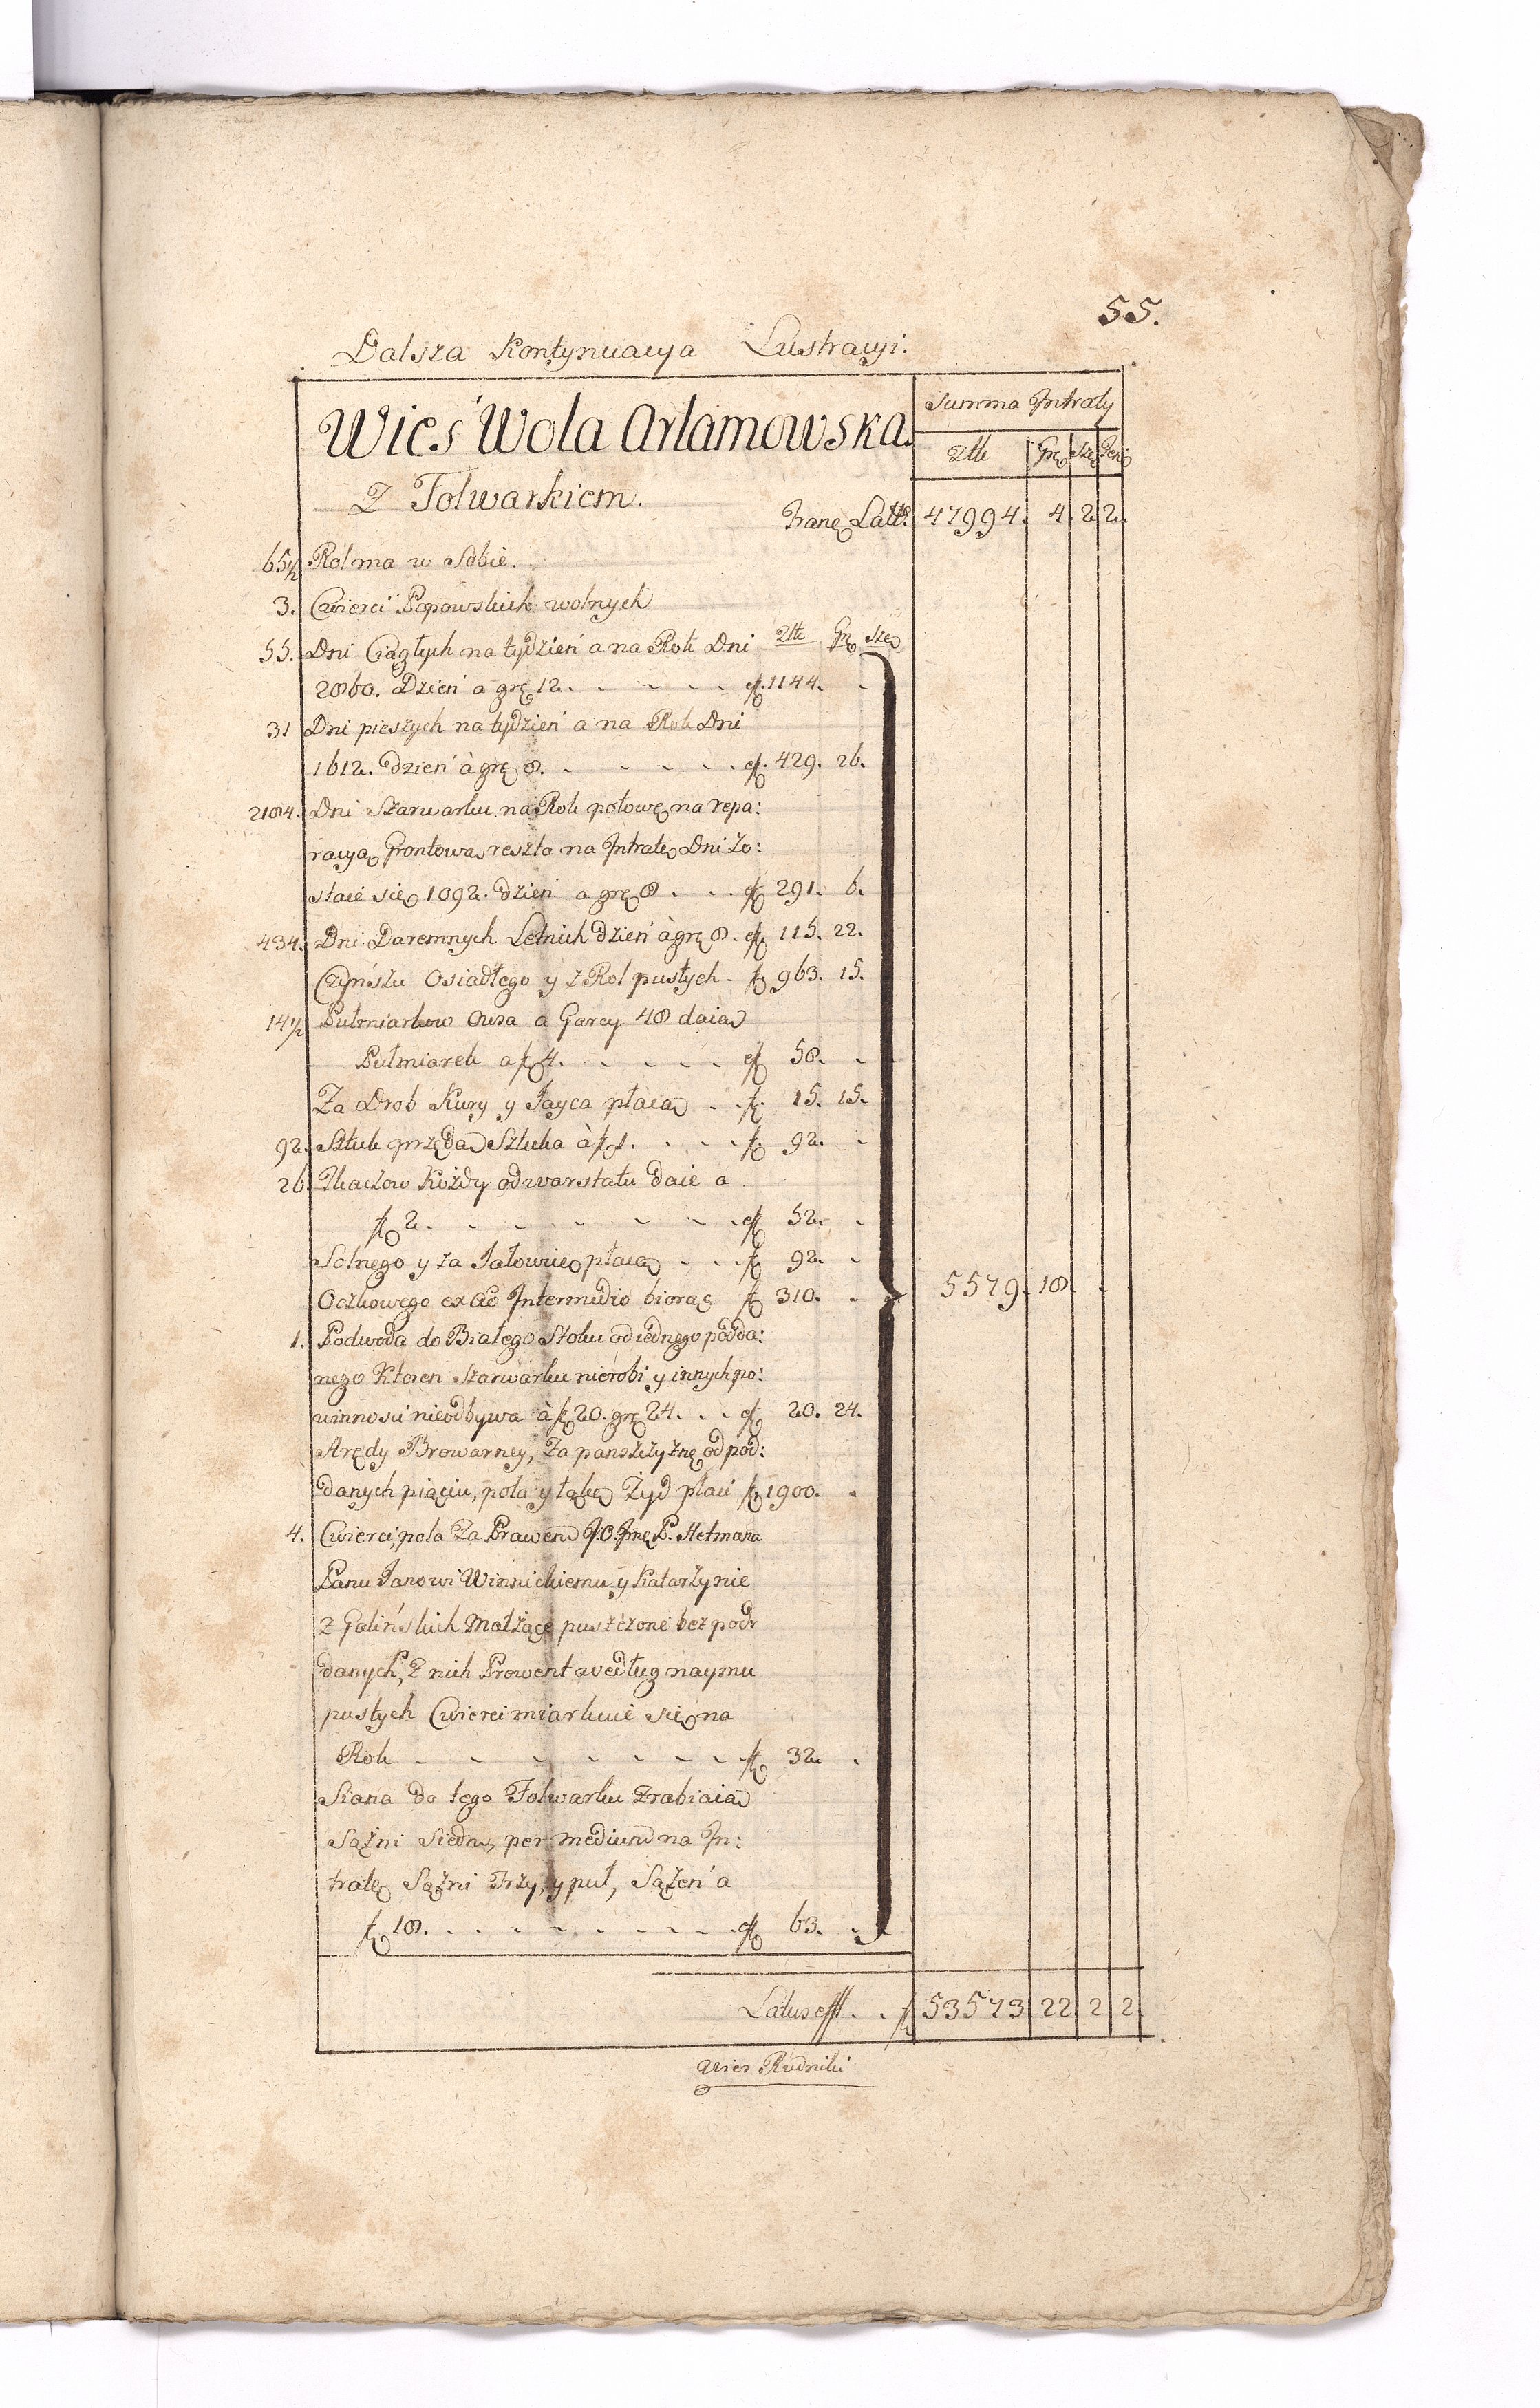 55.
Dalsza Kontynuacya Lustracyi.
Wieś Wola Arłamowska.
Z Folwarkiem.
Summa Intraty
Złłe Grę Szę Den
Tranę Latt. 47994. 4. 2. 2.
65½ Rol ma w Sobie.
3. Cwierci Popowskich wolnych
55. Dni Ciągłych na tydzień a na Rok Dni Złłe Grę Szę
2860. Dzień a grę 12. f. 1144.
31 Dni pieszych na tydzień a na Rok Dni
1612. dzień à grę 8. f. 429. 26.
2184. Dni Szarwarku na Rok połowę na repa:
racyą Grontową reszta na Intratę Dni Zo:
staie się 1092. dzień a grę 8 f 291. 6.
434. Dni Daremnych Letnich dzień à grę 8. f. 115. 22.
Czynszu Osiadłego y z Rol pustych f 963. 15.
14½ Pułmiarkow Owsa a Garcy 48 daią
Pułmiarek a f 4. f 58.
Za Drob Kury y Jayca płacą f. 15. 15.
92. Sztuk przędą Sztuka à f 1. f. 92.
26. Tkaczow Kożdy od warstatu daie a
f 2. f 52.
Solnego y za Jałowice płacą f 92.
Oczkowego ex Intermedio biorąc f 310.
5579. 18.
1. Podwoda do Białego Stoku od iednego podda:
nego Ktoren szarwarku nierobi y innych po:
winnosci nieodbywa à f 20. grę 24. f 20. 24.
Arędy Browarney, Za panszczyznę od pod:
danych piąciu, pola y łąkę Żyd płaci f 1900.
4. Cwierci, pola Za Prawem J.O. Jmę P. Hetmana
Panu Janowi Winnickiemu y Katarzynie
z Galińskich Małżące puszczone bez pod
danych, Z nich Prowent według naymu
pustych Cwierci miarkuie się na
Rok f 32.
Siana do tego Folwarku zrabiaią
Sążni Siedm, per medium na In:
tratę Sążni Trzy, y puł, Sążeń a
f 18. f 63.
Latus eff. f 53573 22 2 2
Wies Rudniki